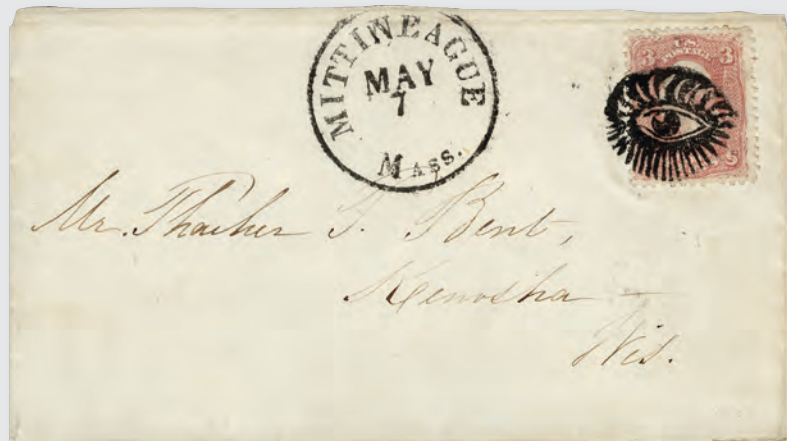 MITTINEAGUE
MAY
7
MASS.
3 U.S. POSTAGE 3
Mr. Thacher T. Bent,
Kenosha
Wis.